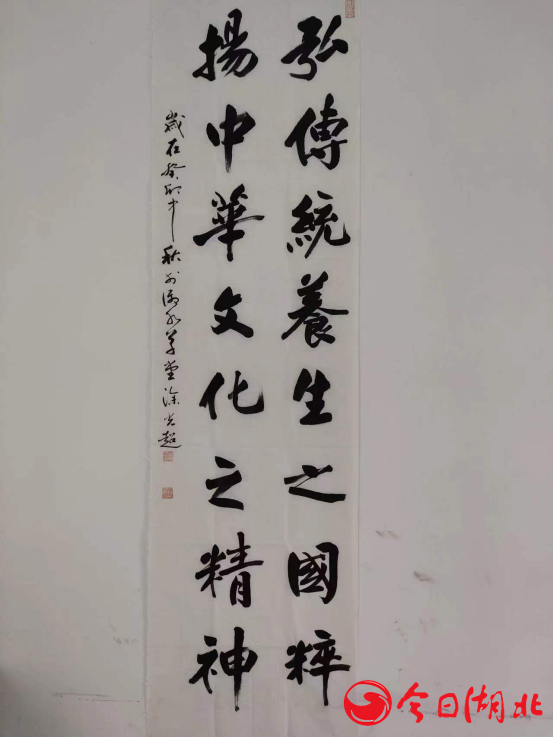 弘傳統養生之國粹
揚中華文化之精神
歲在癸卯中秋於漢水草堂涂光超
今日湖北